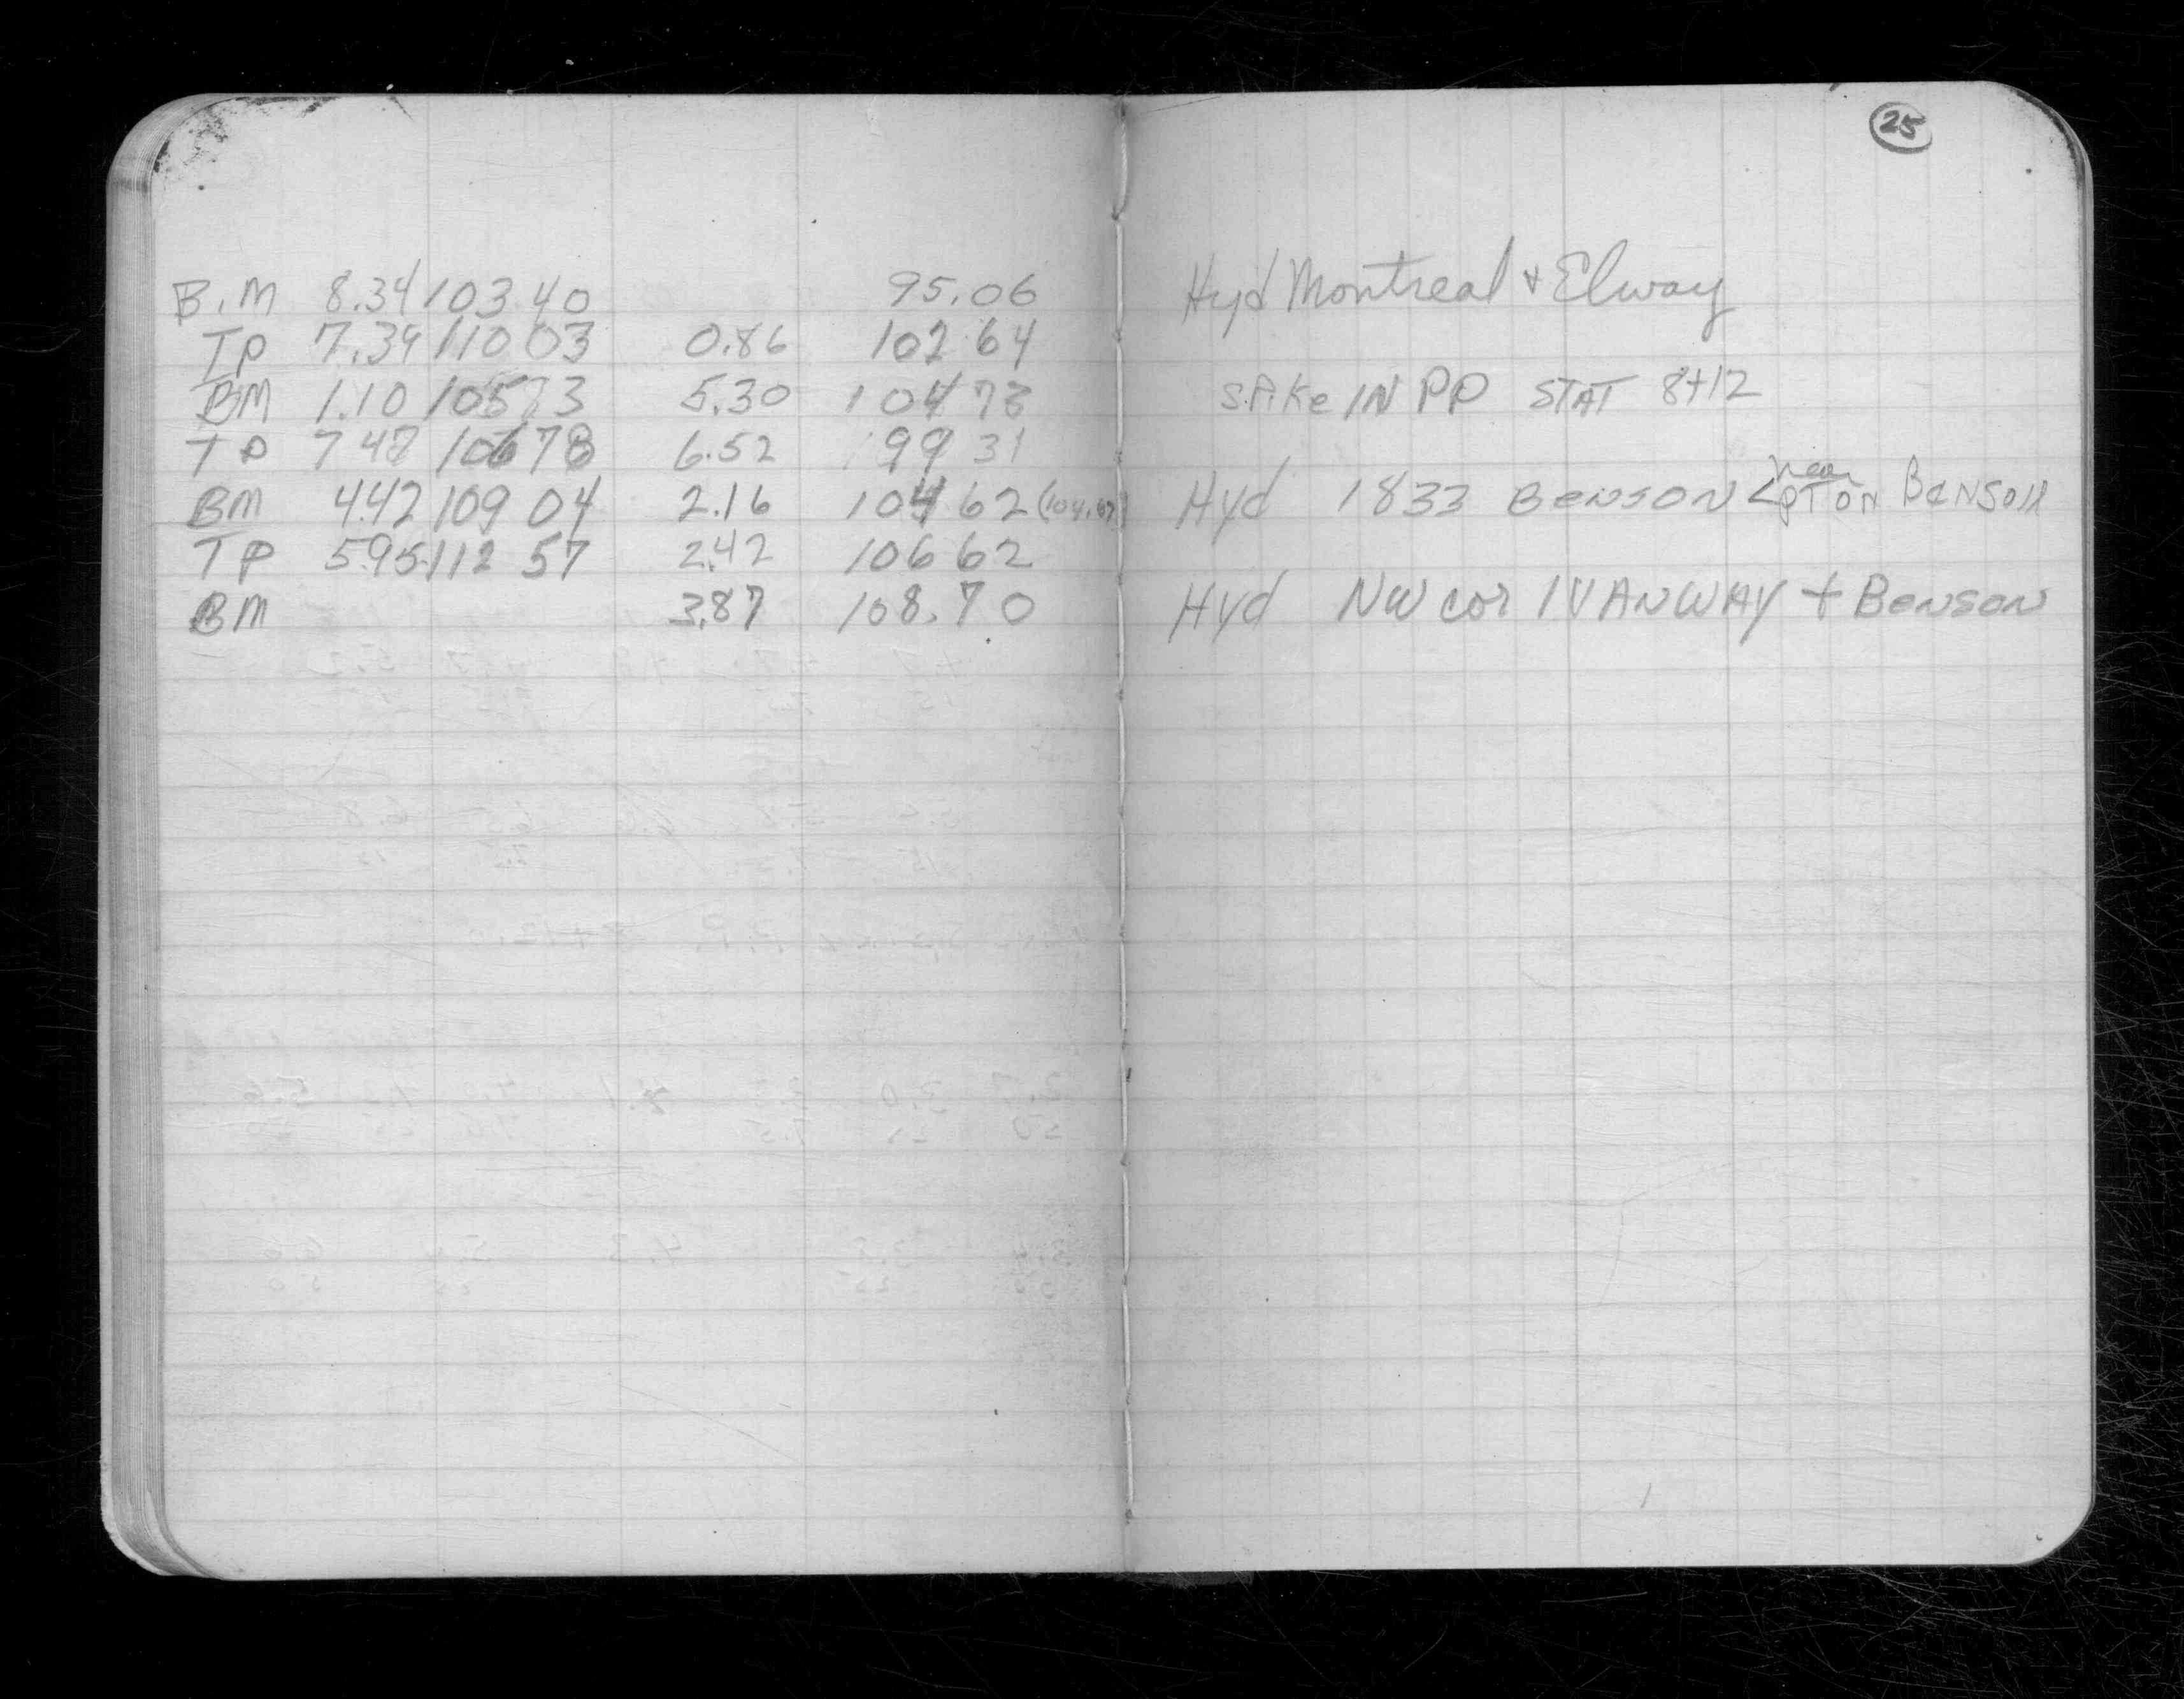 B.M 8.34 103 40 95.06
TP 7.39 110 03 0.86 102 64
BM 1.10 105 83 5.30 104 73
TP 7 47 106 78 6.52 99 31
BM 4.42 109 04 2.16 104 62
TP 5.95 112 57 2.42 106 62
BM 3.87 108.70
25
Hyd Montreal + Elway
SPike IN PP STAT 8+12
Hyd 1833 BENSON near PT ON BENSON
Hyd NW cor IVANWAY + BENSON